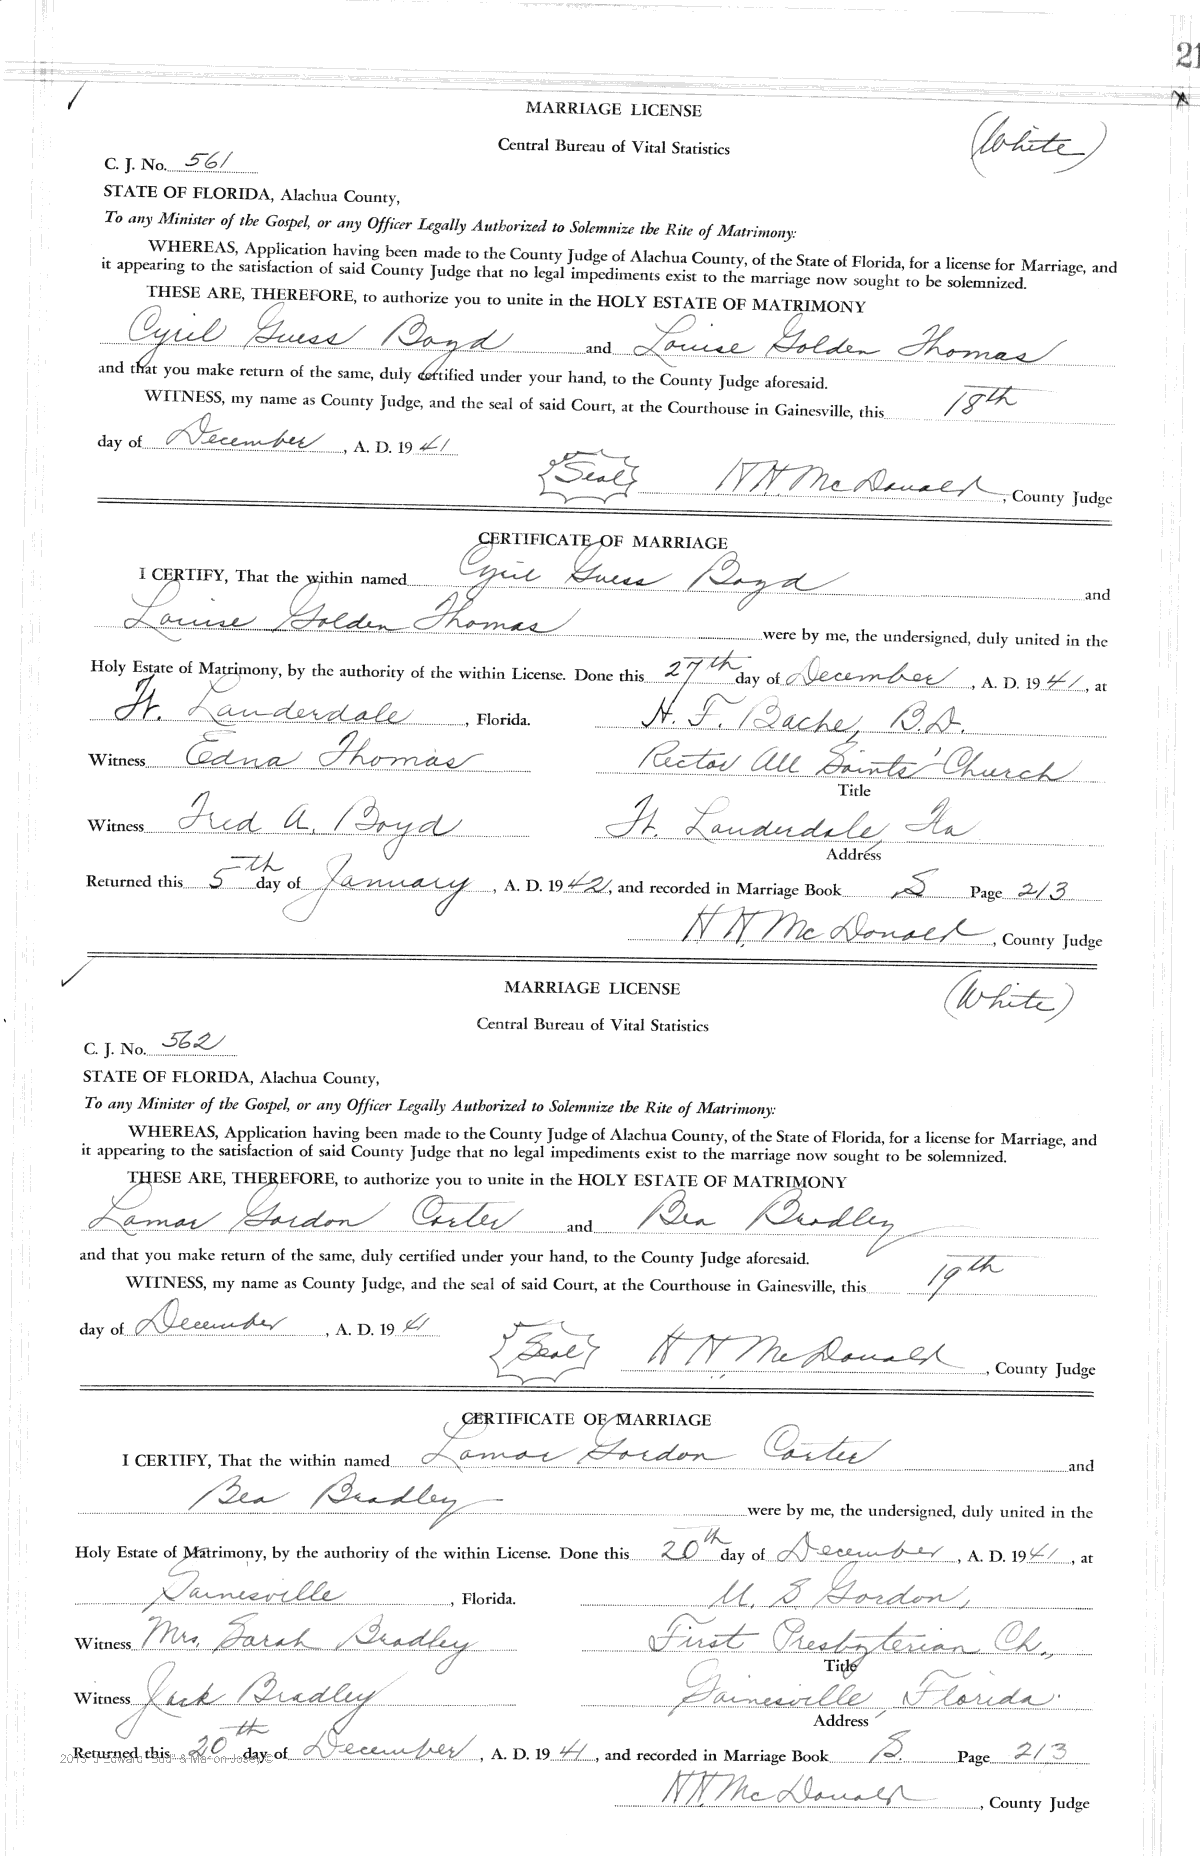 21
MARRIAGE LICENSE
(White)
Central Bureau of Vital Statistics
C. J. No. 561
STATE OF FLORIDA, Alachua County,
To any Minister of the Gospel, or any Officer Legally Authorized to Solemnize the Rite of Matrimony:
WHEREAS, Application having been made to the County Judge of Alachua County, of the State of Florida, for a license for Marriage, and
it appearing to the satisfaction of said County Judge that no legal impediments exist to the marriage now sought to be solemnized.
THESE ARE, THEREFORE, to authorize you to unite in the HOLY ESTATE OF MATRIMONY
Cyril Guess Boyd and Louise Golden Thomas
and that you make return of the same, duly certified under your hand, to the County Judge aforesaid.
WITNESS, my name as County Judge, and the seal of said Court, at the Courthouse in Gainesville, this 18th
day of December, A. D. 1941
Seal H H McDonald, County Judge
CERTIFICATE OF MARRIAGE
I CERTIFY, That the within named Cyril Guess Boyd and
Louise Golden Thomas were by me, the undersigned, duly united in the
Holy Estate of Matrimony, by the authority of the within License. Done this 27th day of December, A. D. 1941, at
Ft. Lauderdale, Florida. H. F. Bache, B.D.
Witness Edna Thomas Rector All Saints' Church
Title
Witness Fred A. Boyd Ft. Lauderdale, Fla
Address
Returned this 5th day of January, A. D. 1942, and recorded in Marriage Book S Page 213
H H McDonald, County Judge
MARRIAGE LICENSE
(White)
Central Bureau of Vital Statistics
C. J. No. 562
STATE OF FLORIDA, Alachua County,
To any Minister of the Gospel, or any Officer Legally Authorized to Solemnize the Rite of Matrimony:
WHEREAS, Application having been made to the County Judge of Alachua County, of the State of Florida, for a license for Marriage, and
it appearing to the satisfaction of said County Judge that no legal impediments exist to the marriage now sought to be solemnized.
THESE ARE, THEREFORE, to authorize you to unite in the HOLY ESTATE OF MATRIMONY
Lamar Gordon Carter and Bea Bradley
and that you make return of the same, duly certified under your hand, to the County Judge aforesaid.
WITNESS, my name as County Judge, and the seal of said Court, at the Courthouse in Gainesville, this 19th
day of December, A. D. 1941
Seal H H McDonald, County Judge
CERTIFICATE OF MARRIAGE
I CERTIFY, That the within named Lamar Gordon Carter and
Bea Bradley were by me, the undersigned, duly united in the
Holy Estate of Matrimony, by the authority of the within License. Done this 20th day of December, A. D. 1941, at
Gainesville, Florida. U. S. Gordon,
Witness Mrs. Sarah Bradley First Presbyterian Ch.,
Title
Witness Jack Bradley Gainesville, Florida.
Address
Returned this 20th day of December, A. D. 1941, and recorded in Marriage Book S. Page 213
H H McDonald, County Judge